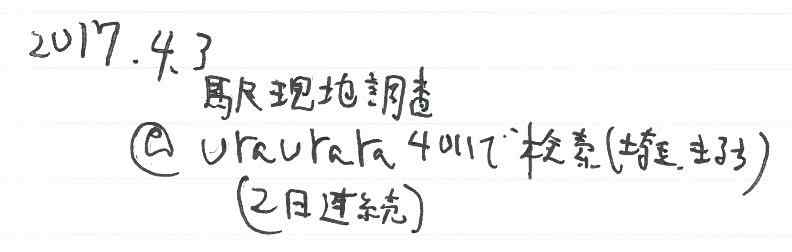 2017.4.3
駅現地調査
@uraurara4011で検索(埼玉.まろち)
(2日連続)